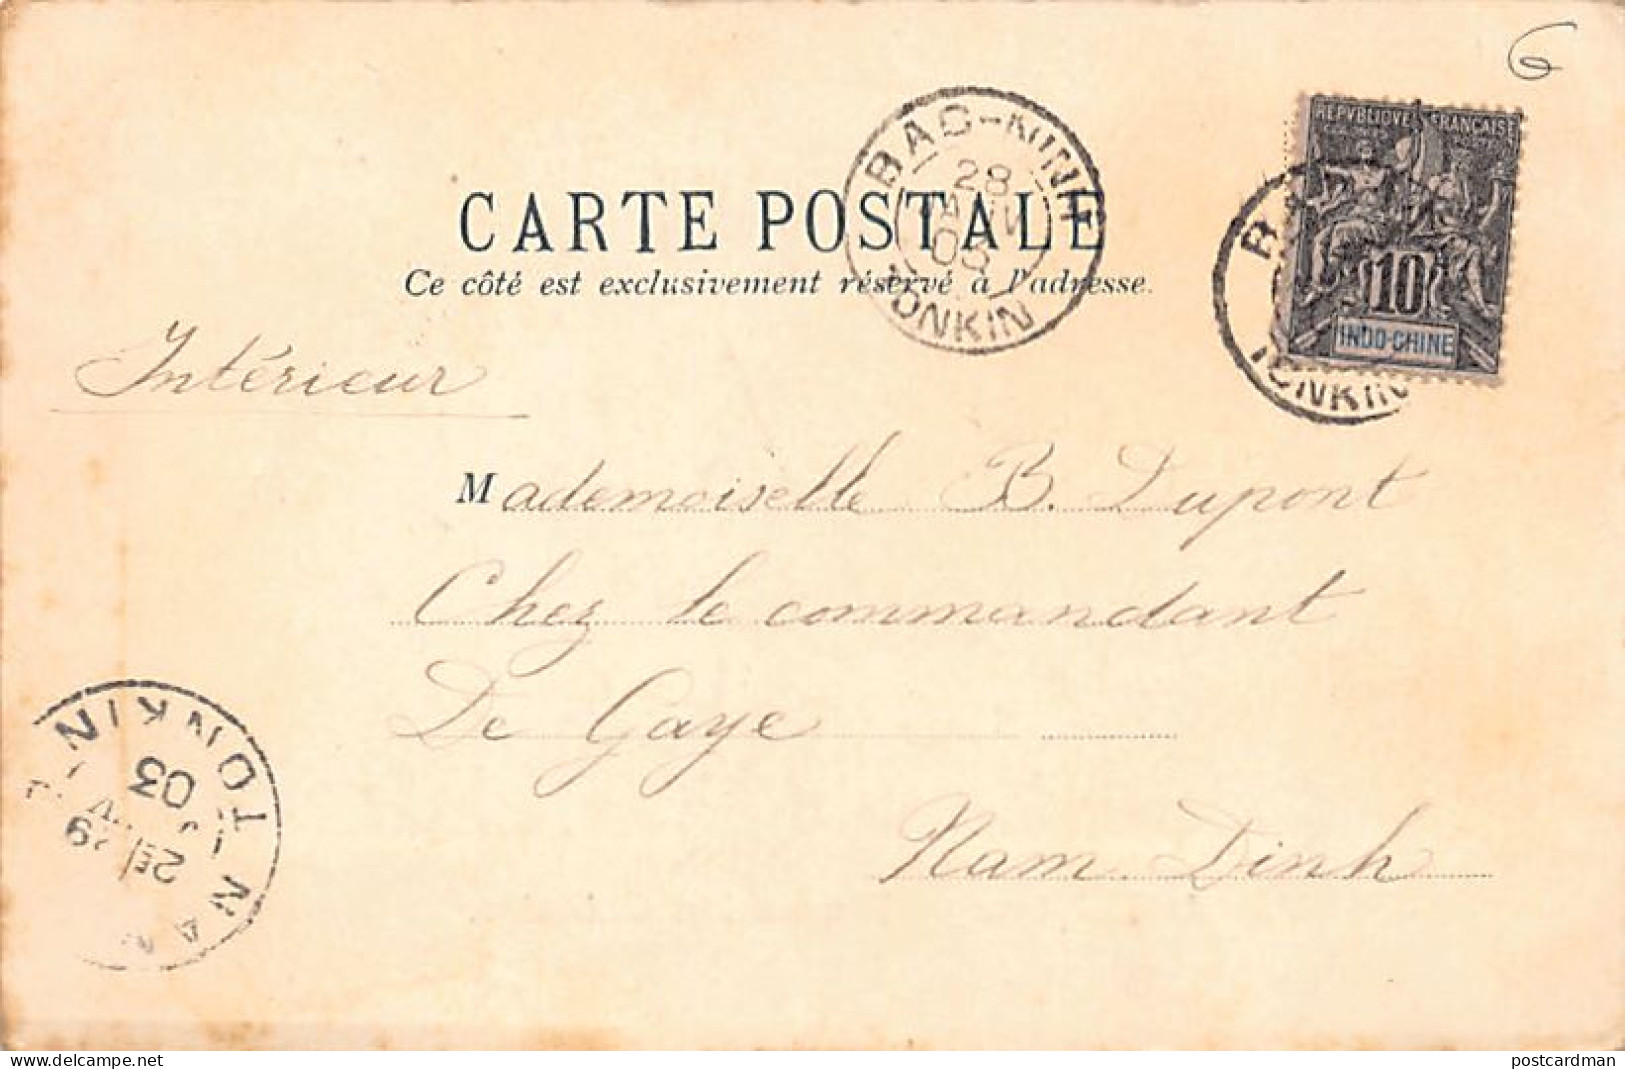 6
REPVBLIQVE FRANÇAISE
10
INDO-CHINE
TONKIN
BAC-NINH
28
03
TONKIN
CARTE POSTALE
Ce côté est exclusivement réservé à l'adresse.
Intérieur
Mademoiselle B. Dupont
Chez le commandant
De Gaye
Nam Dinh
TONKIN
03
delcampe.net
postcardman